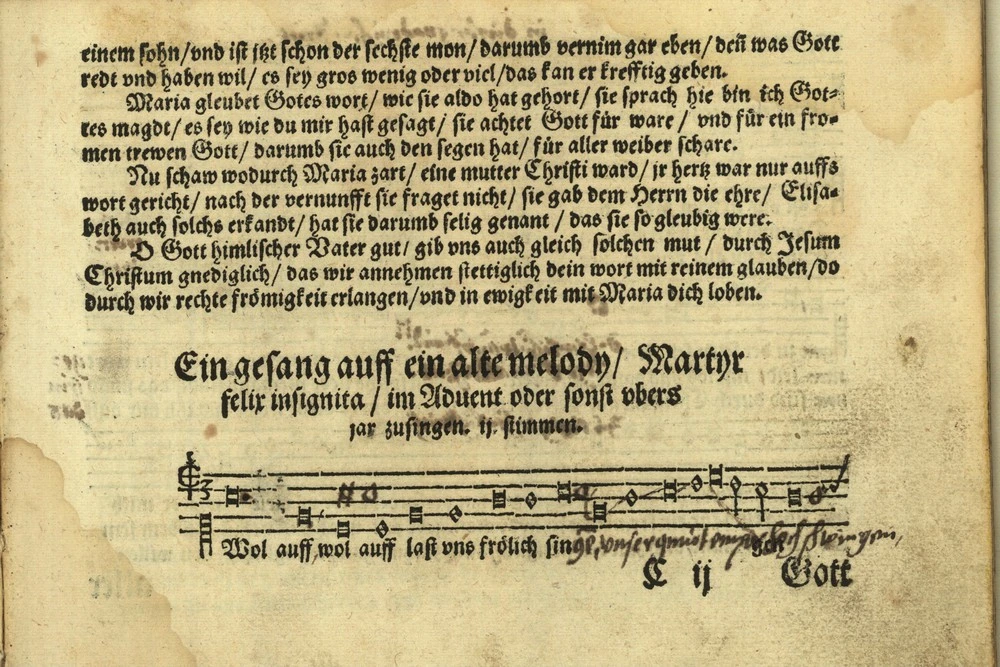 einem sohn/vnd ist jtzt schon der sechste mon/darumb vernim gar eben/deñ was Gott
redt vnd haben wil/ es sey gros wenig oder viel/das kan er krefftig geben.
Maria gleubet Gotes wort/ wie sie aldo hat gehort/ sie sprach hie bin ich Got⸗
tes magdt/ es sey wie du mir hast gesagt/ sie achtet Gott für ware/ vnd für ein fro⸗
men trewen Gott/ darumb sie auch den segen hat/ für aller weiber schare.
Nu schaw wodurch Maria zart/ eine mutter Christi ward/ jr hertz war nur auffs
wort gericht/ nach der vernunfft sie fraget nicht/ sie gab dem Herrn die ehre/ Elisa⸗
beth auch solchs erkandt/ hat sie darumb selig genant/ das sie so gleubig were.
O Gott himlischer Vater gut/ gib vns auch gleich solchen mut/ durch Jesum
Christum gnediglich/ das wir annehmen stettiglich dein wort mit reinem glauben/do
durch wir rechte frömigkeit erlangen/vnd in ewigkeit mit Maria dich loben.
Ein gesang auff ein alte melody/ Martyr
felix insignita/ im Aduent oder sonst vbers
jar zusingen. ij. stimmen.
Wol auff,wol auff last vns frölich singe, vnser gmüt empor schwingen,
C ij Gott